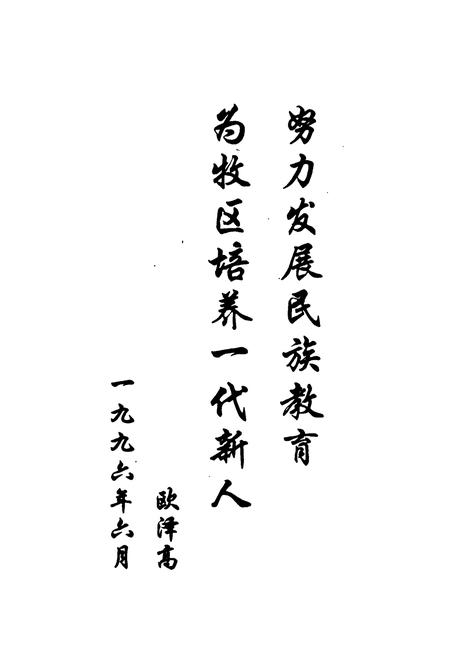 努力发展民族教育
为牧区培养一代新人
欧泽高
一九九六年六月